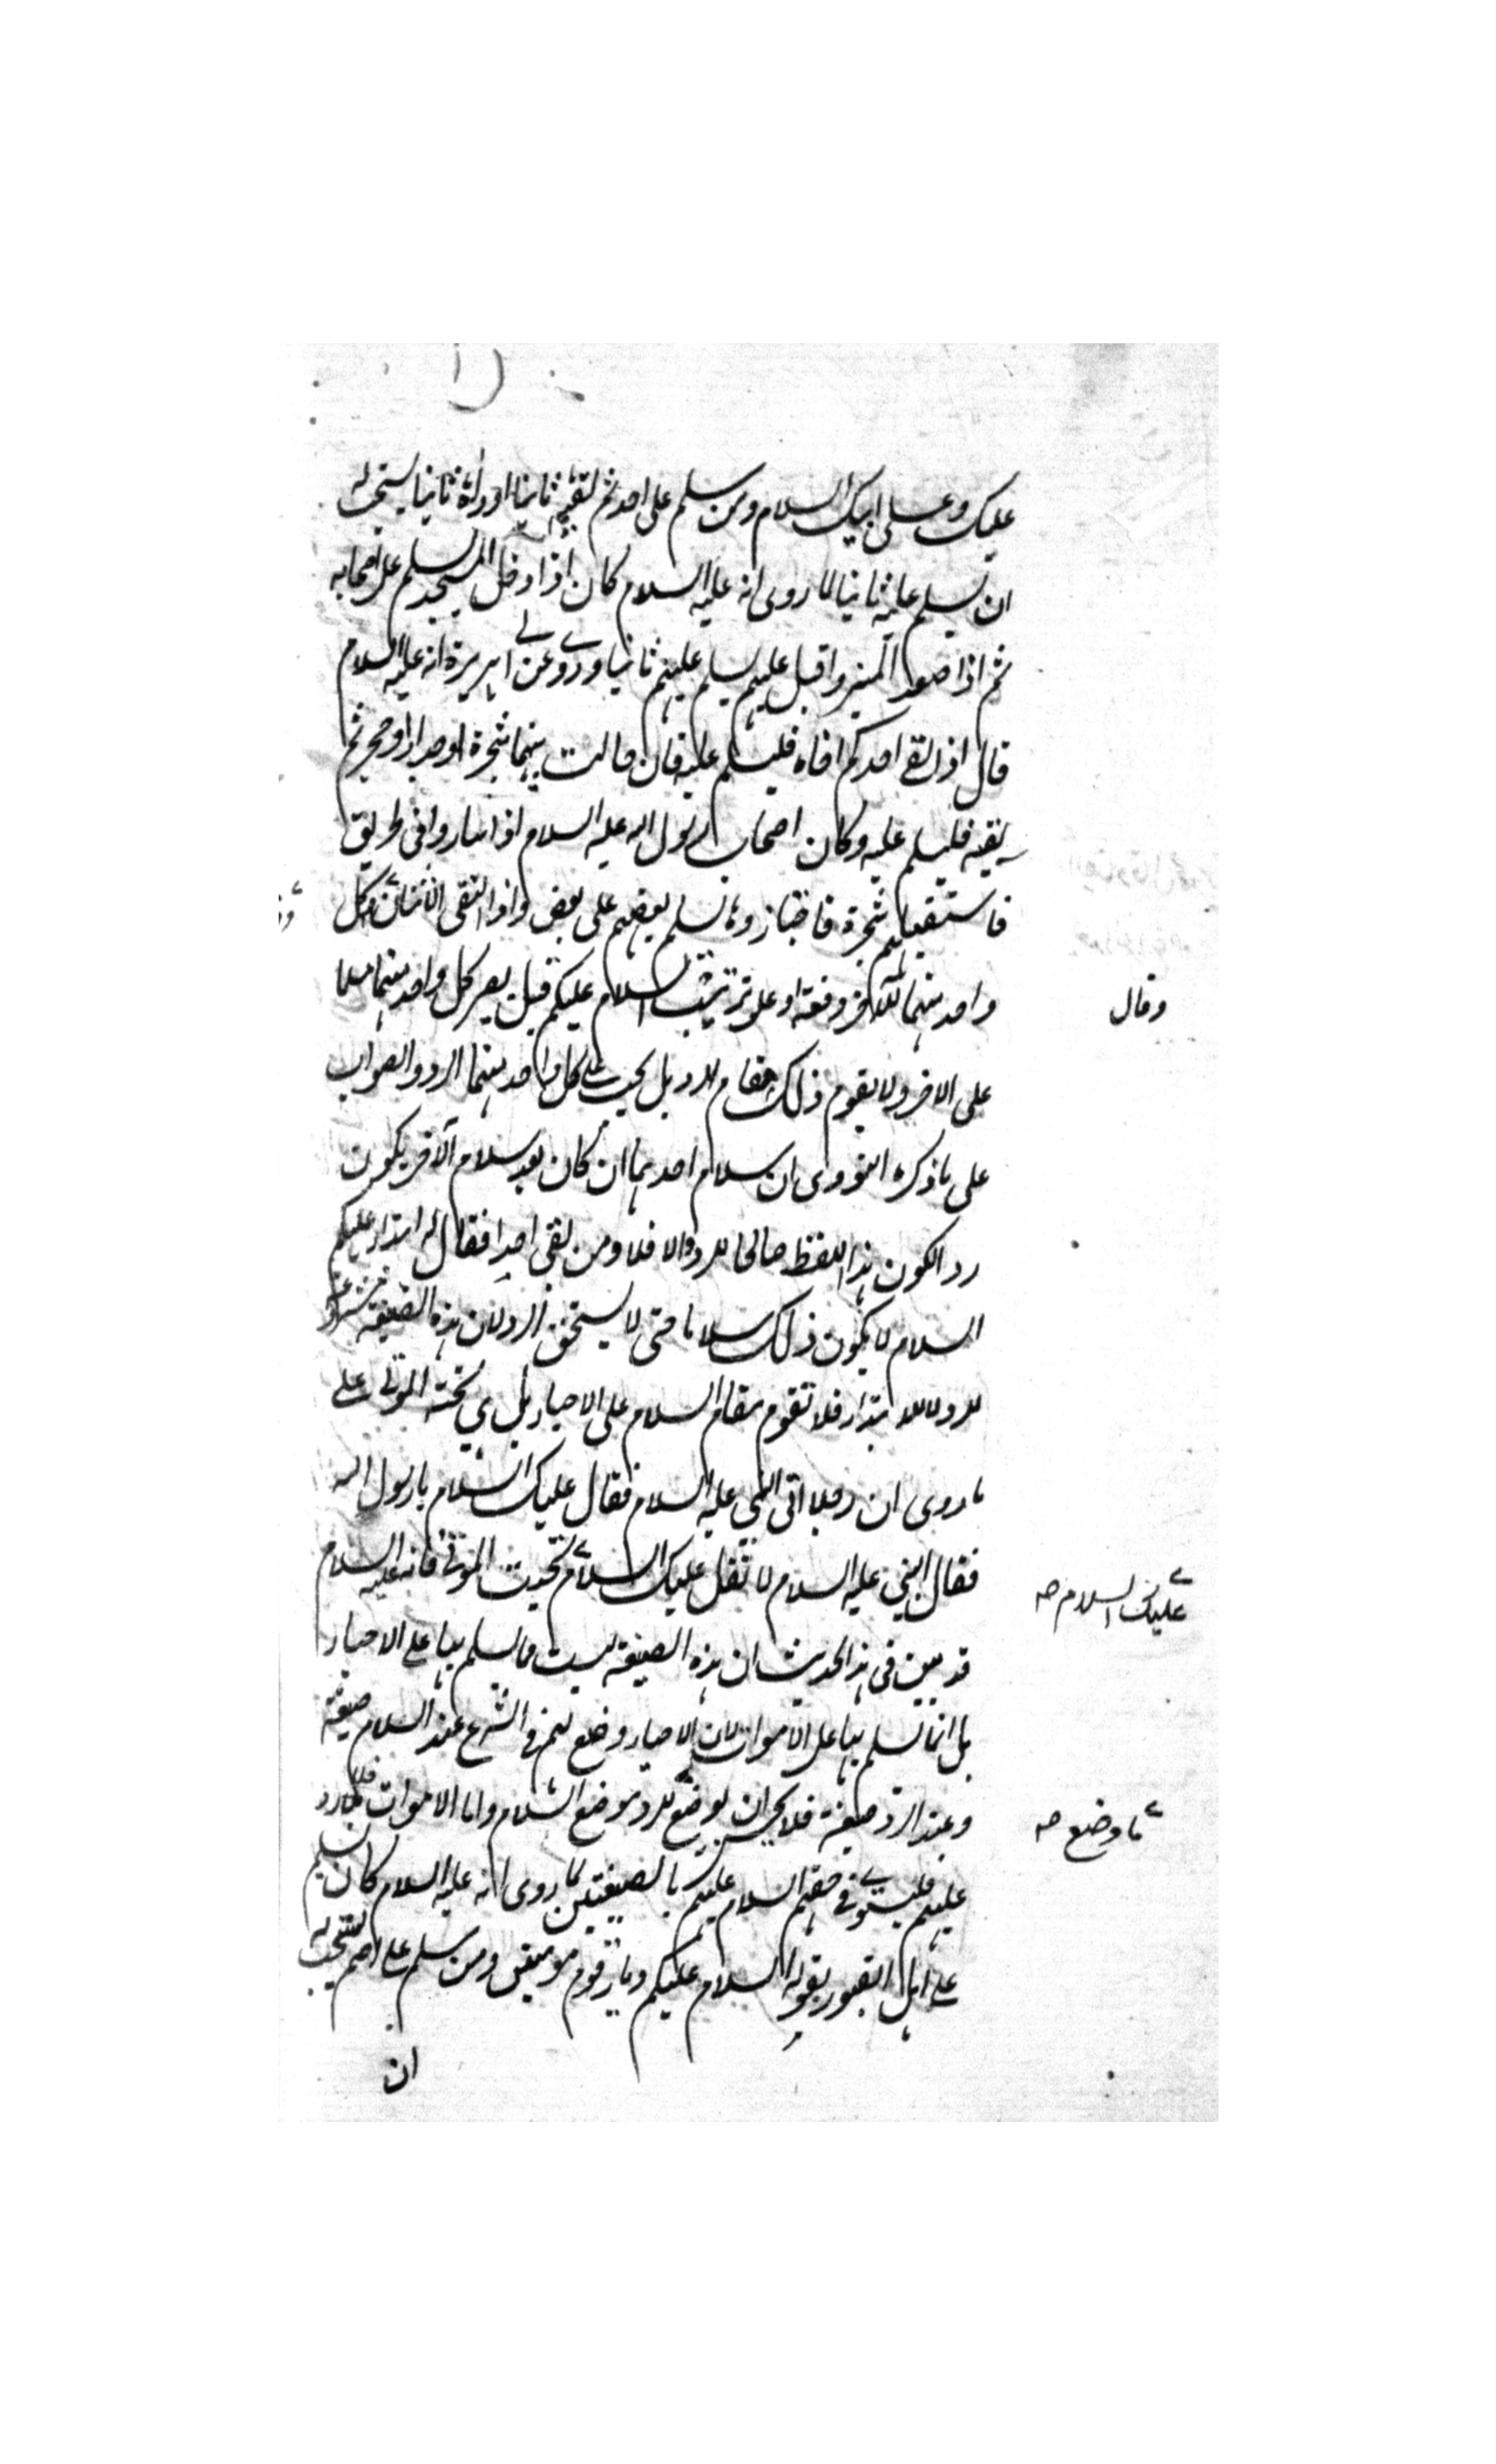 عليك وعلى ابيك السلام ومن سلم على احد ثم لقيه ثانيا او رآه ثانيا يستحب له
ان يسلم عليه ثانيا لما روى انه عليه السلام كان اذا دخل المسجد يسلم على اصحابه
ثم اذا صعد المنبر واقبل عليهم يسلم عليهم ثانيا وروى عن ابى هريرة انه عليه السلام
قال اذا لقى احدكم اخاه فليسلم عليه فان حالت بينهما شجرة او جدار او حجر ثم
لقيه فليسلم عليه وكان اصحاب رسول الله عليه السلام اذا ساروا فى طريق
فاستقبلهم شجرة فاجتازوها سلم بعضهم على بعض واذا التقى الاثنان وقال كل
واحد منهما للآخر دفعة او على ترتيب السلام عليكم قيل يصير كل واحد منهما مسلما
على الاخر ولا يقوم ذلك مقام الرد بل يجب على كل واحد منهما الرد والصواب
على ما ذكره النووى ان سلام احدهما ان كان بعد سلام الآخر يكون
ردا لكون هذا اللفظ صالحا للرد والا فلا ومن لقى احدا فقال له ابتداء عليكم
السلام لا يكون ذلك سلاما حتى لا يستحق الرد لان هذه الصيغة
للرد لا للابتداء فلا تقوم مقام السلام على الاحياء بل هى تحية الموتى على
ما روى ان رجلا اتى النبى عليه السلام فقال عليك السلام يا رسول الله
فقال النبى عليه السلام لا تقل عليك السلام تحية الموتى فانه عليه السلام
عليك السلام صح
قد بين فى هذا الحديث ان هذه الصيغة ليست مما يسلم بها على الاحياء
بل انما تسلم بها على الاموات لان الاحياء وضع لهم فى الشرع عند السلام صيغة
وعند الرد صيغة فلا يحسن ان يوضع للرد موضع السلام واما الاموات فلا رد
ما وضع صح
عليهم فليستوى فى حقهم السلام عليهم بالصيغتين لما روى انه عليه السلام كان يسلم
على اهل القبور بقوله السلام عليكم ديار قوم مؤمنين ومن سلم على اصم يستحب له
ان